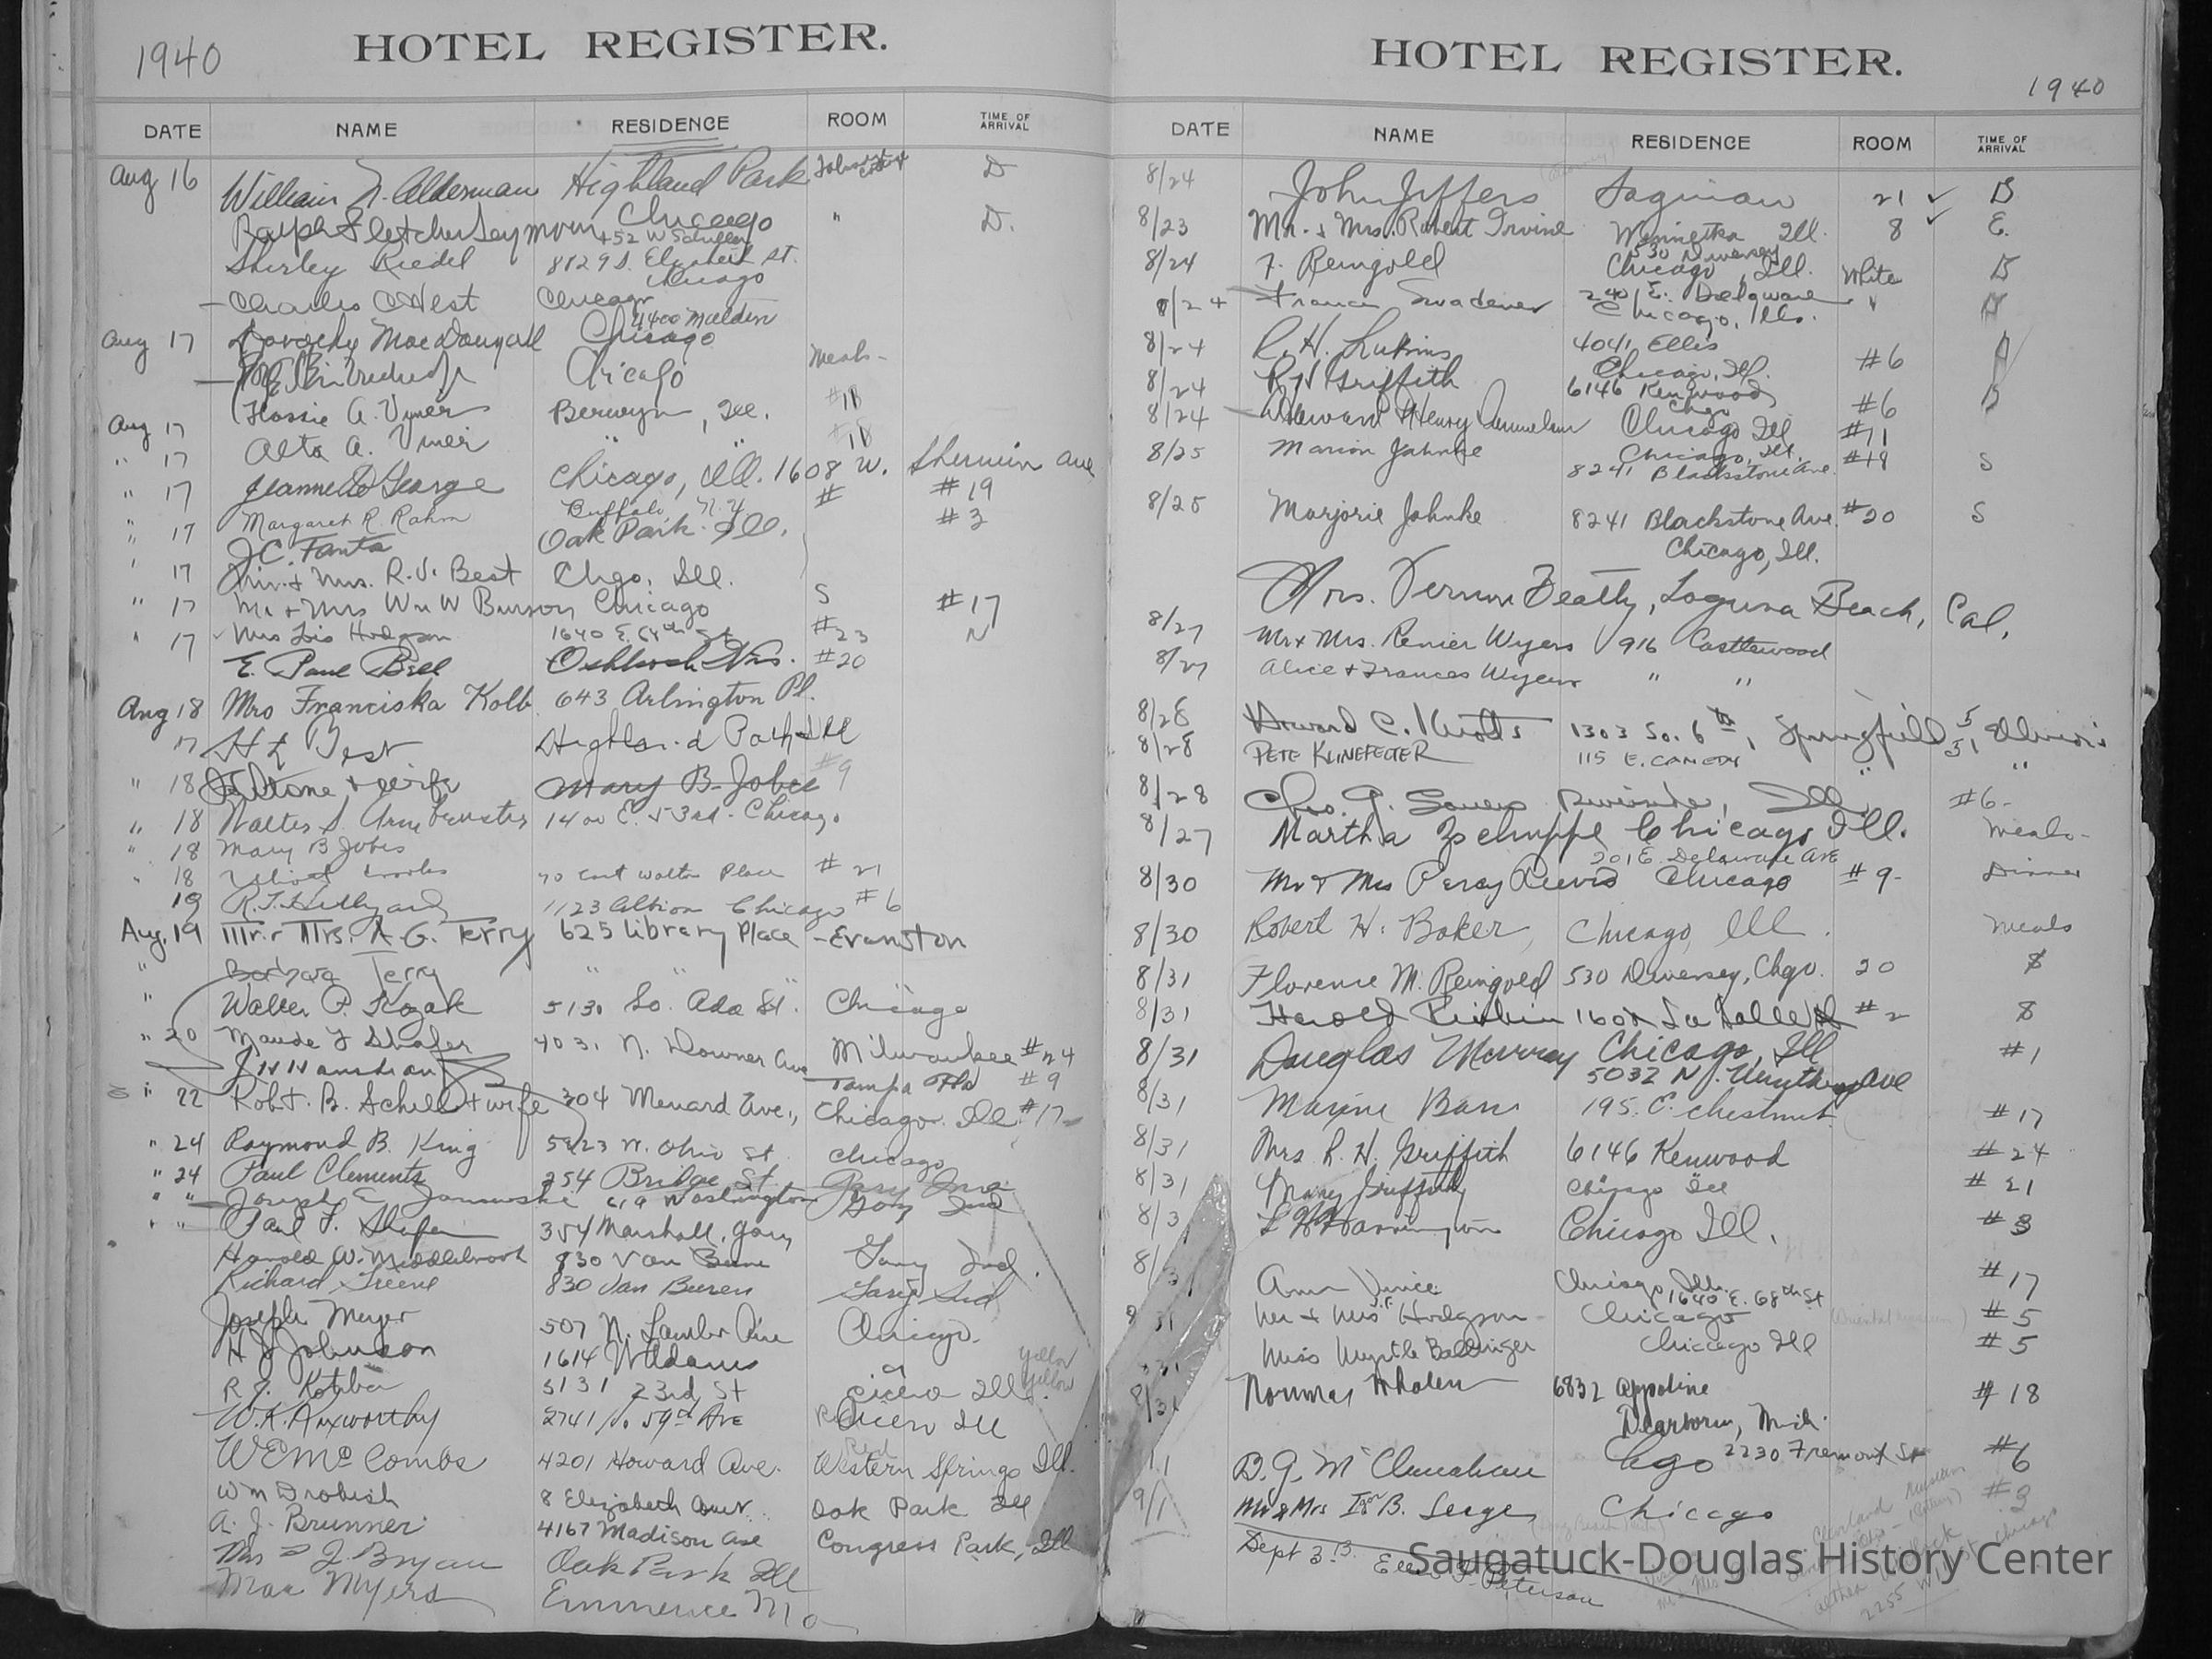 1940 HOTEL REGISTER.
DATE NAME RESIDENCE ROOM TIME OF ARRIVAL
Aug 16 William N. Alderman Highland Park D
Ralph Fletcher Seymour Chicago " D.
452 W Schiller
Shirley Riedel 8129 S. Elizabeth St.
Chicago
Charles C West Chicago
4400 Malden
Aug 17 Dorothy MacDougall Chicago
Chicago Meals-
Flossie A. Viner Berwyn, Ill. #18
Aug 17 Alta A. Viner " " #18
" 17 Jeannette George Chicago, Ill. 1608 W. Sherwin Ave
" 17 Margaret R. Rahm Buffalo N.Y. # #19
" 17 J.C. Fanta Oak Park. Ill. #3
' 17 Mr. & Mrs. R. J. Best Chgo, Ill.
" 17 Mr + Mrs Wm W Burson Chicago S #17
" 17 Mrs Hodgson 1640 E. 68th St #23 N
E. Paul Bell Oshkosh Wis. #20
Aug 18 Mrs Franciska Kolb 643 Arlington Pl.
17 Best Highland Park Ill
" 18 Stone + wife Mary B. Jobes #9
" 18 Walter S. Armbruster 1400 E. 53rd - Chicago
" 18 Mary B Jobes
" 18 70 East Walton Place #21
19 R.T. Hillyard 1123 Albion Chicago #6
Aug. 19 Mr. & Mrs. A. G. Terry 625 Library Place - Evanston
" Barbara Terry " " "
" Walter P. Kozak 5130 So. Ada St. Chicago
" 20 Maude F Shafer 4031 N. Downer Ave Milwaukee #24
Tampa Fla #9
" 22 Robt. B. Schell + wife 304 Menard Ave., Chicago. Ill. #17-
" 24 Raymond B. King 5923 W. Ohio St Chicago
" 24 Paul Clements 254 Bridge St. Gary Ind
" " Joseph E 619 Washington Gary Ind
" " Paul F. 354 Marshall, Gary
Harold W. Middlebrook 830 Van Buren Gary Ind.
Richard Greene 830 Van Buren Gary Ind
Joseph Meyer 507 N. Lawler Ave Chicago.
H J Johnson 1614 W Adams "
Yellow
R J. Kotiba 5131 23rd St Cicero Ills. Yellow
W.K. Axworthy 2741 So. 59th Ave Cicero Ill
Red
W E McCombs 4201 Howard Ave. Western Springs Ill.
Wm Drobish 8 Elizabeth Court Oak Park Ill
A. J. Brunner 4167 Madison Ave Congress Park, Ill
Mrs J. Bryan Oak Park Ill
Mae Myers Emmence Mo
HOTEL REGISTER. 1940
DATE NAME RESIDENCE ROOM TIME OF ARRIVAL
8/24 John Jeffers Saginaw 21 ✓ B
8/23 Mr. & Mrs. Robert Irvine Winnetka Ill. 8 ✓ E.
530 Diversey
8/24 F. Reingold Chicago, Ill. White B
8/24 Swadener 240 E. Delaware "
Chicago, Ills.
8/24 R. H. 4041 Ellis
Chicago, Ill. #6
8/24 R H Griffith 6146 Kenwood B
Chgo #6
8/24 Henry Chicago Ill #11
8/25 Marion Jahnke Chicago, Ill. #19 S
8241 Blackstone Ave.
8/25 Marjorie Jahnke 8241 Blackstone Ave. #20 S
Chicago, Ill.
Mrs. Vernon Beatty, Laguna Beach, Cal.
8/27 Mr & Mrs. Renier Wyers 916 Castlewood
8/27 Alice + Frances Wyers " "
8/28 Howard C. Knotts 1303 So. 6th, Springfield, Illinois
8/28 PETE KLINEFELTER 115 E. CANEDY " "
8/28 Chas. Riverside, Ill. #6-
8/27 Martha Zschuppe Chicago Ill. Meals-
201 E. Delaware Ave
8/30 Mr & Mrs Percy Reevis Chicago #9- Dinner
8/30 Robert H. Baker, Chicago, Ill. Meals
8/31 Florence M. Reingold 530 Diversey, Chgo. 20
8/31 Harold 1608 La Salle St #2
8/31 Douglas Murray Chicago, Ill #1
5032 N. Ave
8/31 Maxine Barr 195. E. Chestnut #17
8/31 Mrs R. H. Griffith 6146 Kenwood #24
8/31 Mary Griffith Chicago Ill #21
8/3 Harrington Chicago Ill. #3
8/31 Ann Vinice Chicago, Ills. #17
1640 E. 68th St
31 Mr & Mrs Hodgson Chicago #5
Miss Myrtle Ballinger Chicago Ill #5
8/31 Norman Whalen 6832 Appoline #18
Dearborn, Mich.
D. G. McClenahan Chgo 2230 Fremont St #6
9/1 Mr & Mrs B. Seege Chicago #3
Sept 3 Peterson
2255 W
Saugatuck-Douglas History Center